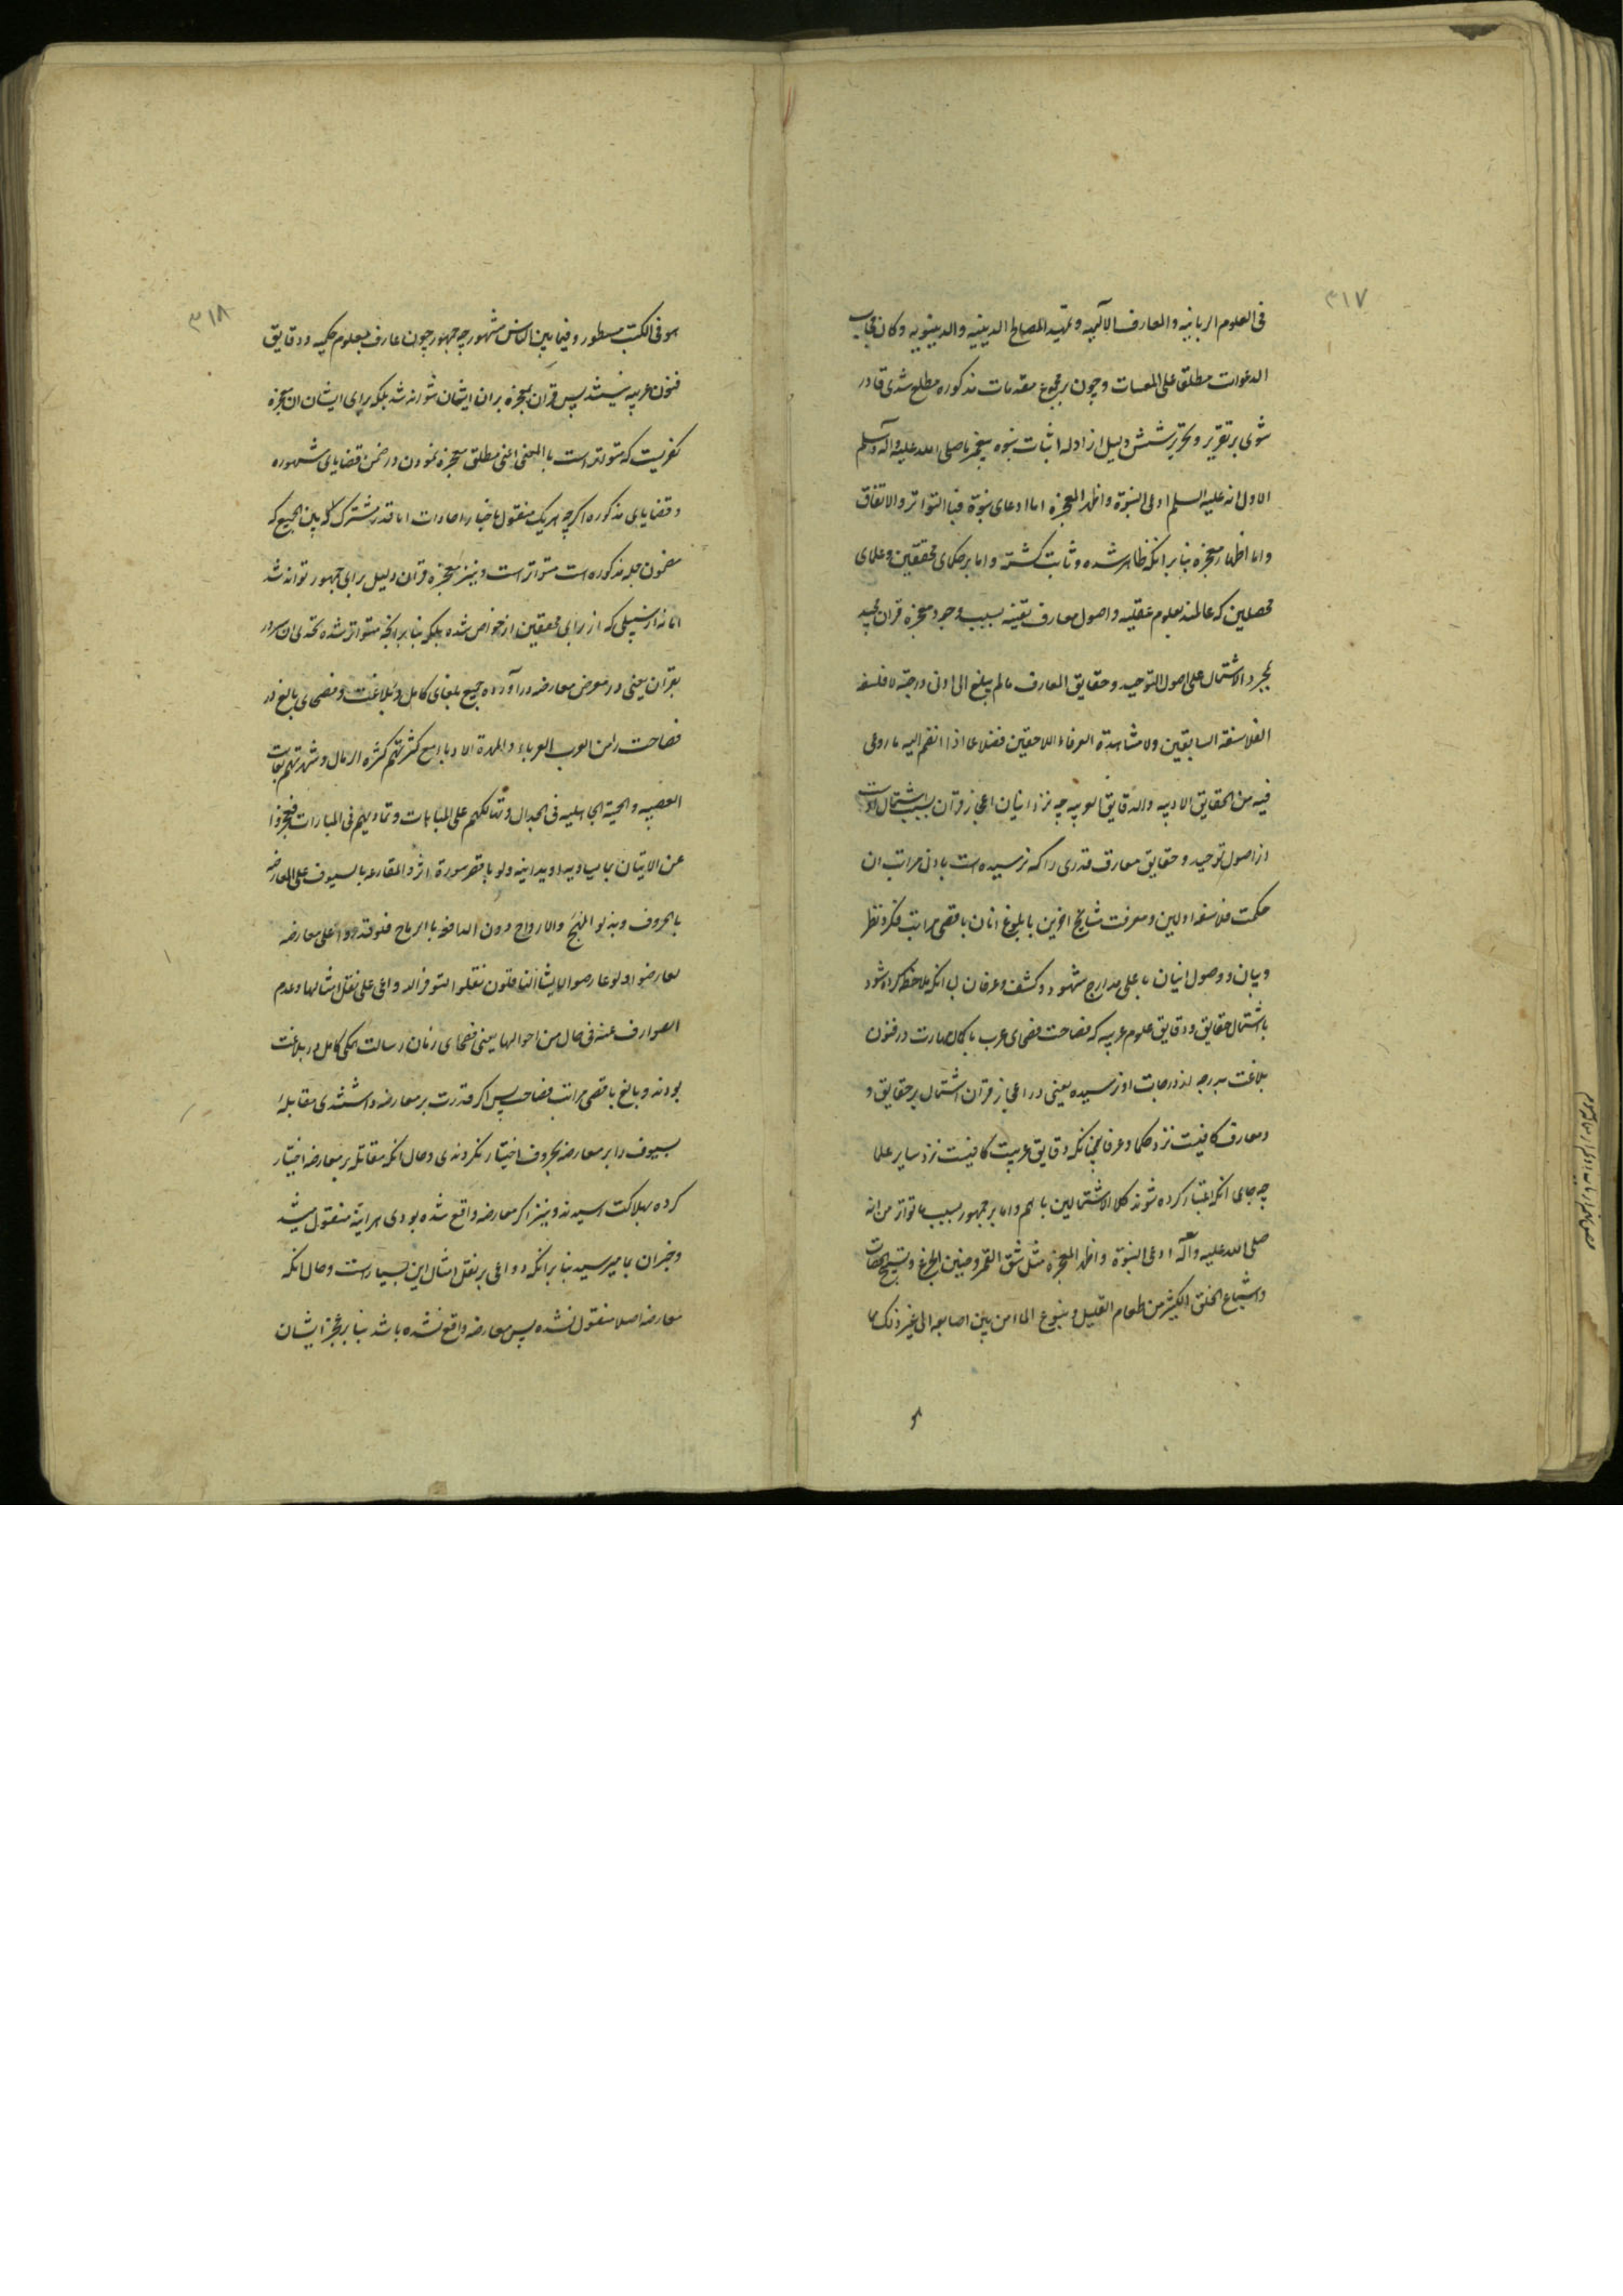 ۳۱۷
فی العلوم الربانیه والمعارف الالهیه و تمهید المصالح الدینیه والدینویه و کان مجاب
الدعوات مطلقا علی المغیبات و چون بر مجموع مقدمات مذکوره مطلع شدی قادر
شوی بر تقریر و تحریر شش دلیل از ادله اثبات نبوه پیغمبر ما صلی الله علیه وآله وسلم
الاول انه علیه السلم ادعی النبوة واظهر المعجزه اما ادعای نبوة فبا التواتر والاتفاق
واما اظهار معجزه بنابر انکه ظاهر شده و ثابت کشته واما بر حکمای محققین و علمای
محصلین که عالمند بعلوم عقلیه و اصول معارف یقینه بسبب وجود معجزه قران مجید
بمجرد الاشتمال علی اصول التوحید و حقایق المعارف ما لم یبلغ الی ادنی درجته فلسفه
الفلاسفة السابقین ولا مشاهدة العرفاء اللاحقین فضلا عما اذا انضم الیه ما روعی
فیه من الحقایق الادبیه والدقایق العربیه چه نزد اینان اعجاز قران بسبب اشتمال اوست
از اصول توحید و حقایق معارف قدری را که نرسیده است بادنی مراتب ان
حکمت فلاسفه اولین و معرفت مشایخ اخرین با بلوغ انان باقصی مراتب فکر و نظر
و بیان و وصول اینان باعلی مدارج شهود و کشف و عرفان بی انکه ملاحظه کرده شود
باشتمال حقایق و دقایق علوم عربیه که فصاحت فصحای عرب با کمال مهارت در فنون
بلاغت بدرجه از درجات او نرسیده یعنی در اعجاز قران اشتمال بر حقایق و
و معارف کافیست نزد حکما و عرفا چنانکه دقایق عربیت کافیست نزد سایر علما
چه جای انکه اعتبار کرده شوند کلا الاشتمالین با هم واما بر جمهور بسبب ما تواتر من انه
صلی الله علیه وآله ادعی النبوة واظهر المعجزه مثل شق القمر و حنین الجزع و تسبیح الحصات
واشباع الخلق الکثیر من طعام القلیل و ینبوع الما من بین اصابعه الی غیر ذلک مما
۳۱۸
هو فی الکتب مسطور و فیما بین الناس مشهور چه جمهور چون عارف بعلوم حکمیه و دقایق
فنون عربیه نیستند پس قران معجزه بران ایشان نتواند شد بلکه برای ایشان ان معجزه
کفریست که متواتر است با المعنی اعنی مطلق معجزه نمودن در ضمن قضایای مشهوره
و قضایای مذکوره اکرچه هر یک منقول باخبار احادات اما قدر مشترک بین الجمیع که
مضمون جمله مذکوره است متواتر است و نیز معجزه قران دلیل برای جمهور تواند شد
اما نه از سبیلی که از برای محققین از خواص شده بلکه بنابر انچه متواتر شده تحدی ان سرور
بقران یعنی در معرض معارضه دراورده جمیع بلغای کامل در بلاغت و فصحای بالغ در
فصاحت را من العرب العرباء والمهرة الادباء مع کثرتهم کثرة الرمال و شهرتهم بغایت
العصبیه والحمیة الجاهلیه فی الجدال و تهالکهم علی المباهات و تمادیهم فی المبارات فعجزوا
عن الاتیان بما یساویه او یدانیه ولو باقصر سورة اثر والمقارعه بالسیوف علی المعارضه
بالحروف و بذلو المهج والارواح دون المدافعه با الرماح فلو قدروا علی معارضه
لعارضوا ولو عارضوا لایشا الناقلون نقلوا لتوفر الدواعی علی نقل امثالها و عدم
الصوارف عنه فی حال من احوالها یعنی فصحای زمان رسالت همکی کامل در بلاغت
بودند و بالغ باقصی مراتب فصاحت پس اکر قدرت بر معارضه داشتندی مقابلهٔ
بسیوف را بر معارضه بحروف اختیار نکردندی و حال انکه مقاتله بر معارضه اختیار
کرده بهلاکت رسیدند و نیز اکر معارضه واقع شده بودی هراینه منقول میشد
و خبران بما میرسید بنابر انکه دواعی بر نقل امثال این بسیارست و حال انکه
معارضه اصلا منقول نشده پس معارضه واقع نشده باشد بنابر عجز ایشان